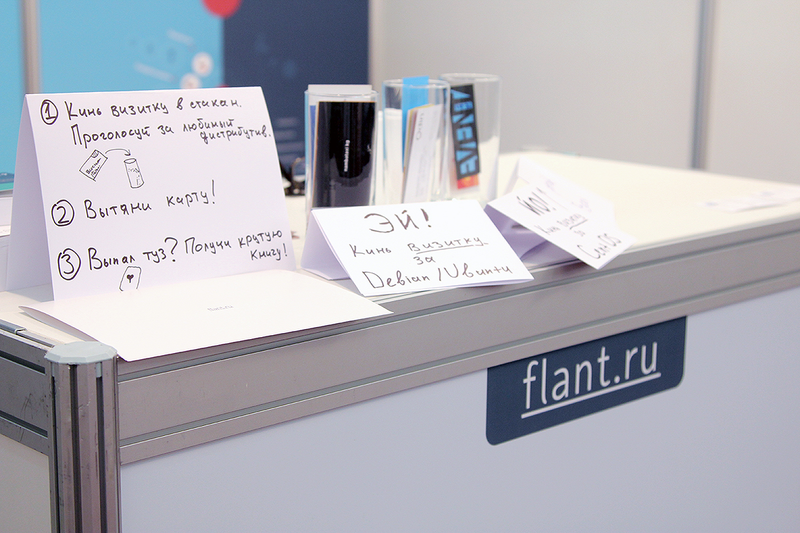 ① Кинь визитку в стакан.
Проголосуй за любимый
дистрибутив.
② Вытяни карту!
③ Выпал туз? Получи крутую
книгу!
ЭЙ!
Кинь визитку
за
Debian/Ubuntu
Кинь
за
CentOS
flant.ru